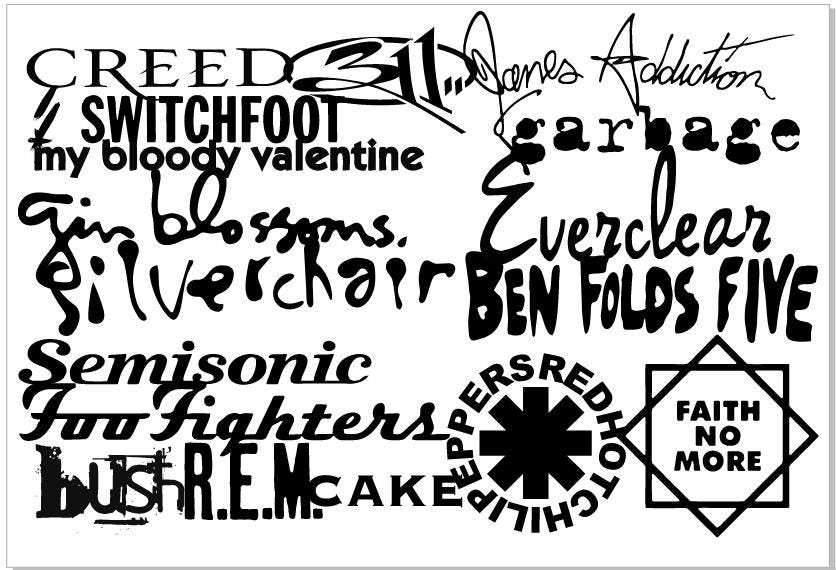 CREED
311
Janes Addiction
SWITCHFOOT
garbage
my bloody valentine
gin blossoms.
Everclear
silverchair
BEN FOLDS FIVE
Semisonic
Foo Fighters
RED HOT CHILI PEPPERS
FAITH
NO
MORE
bush
R.E.M.
CAKE